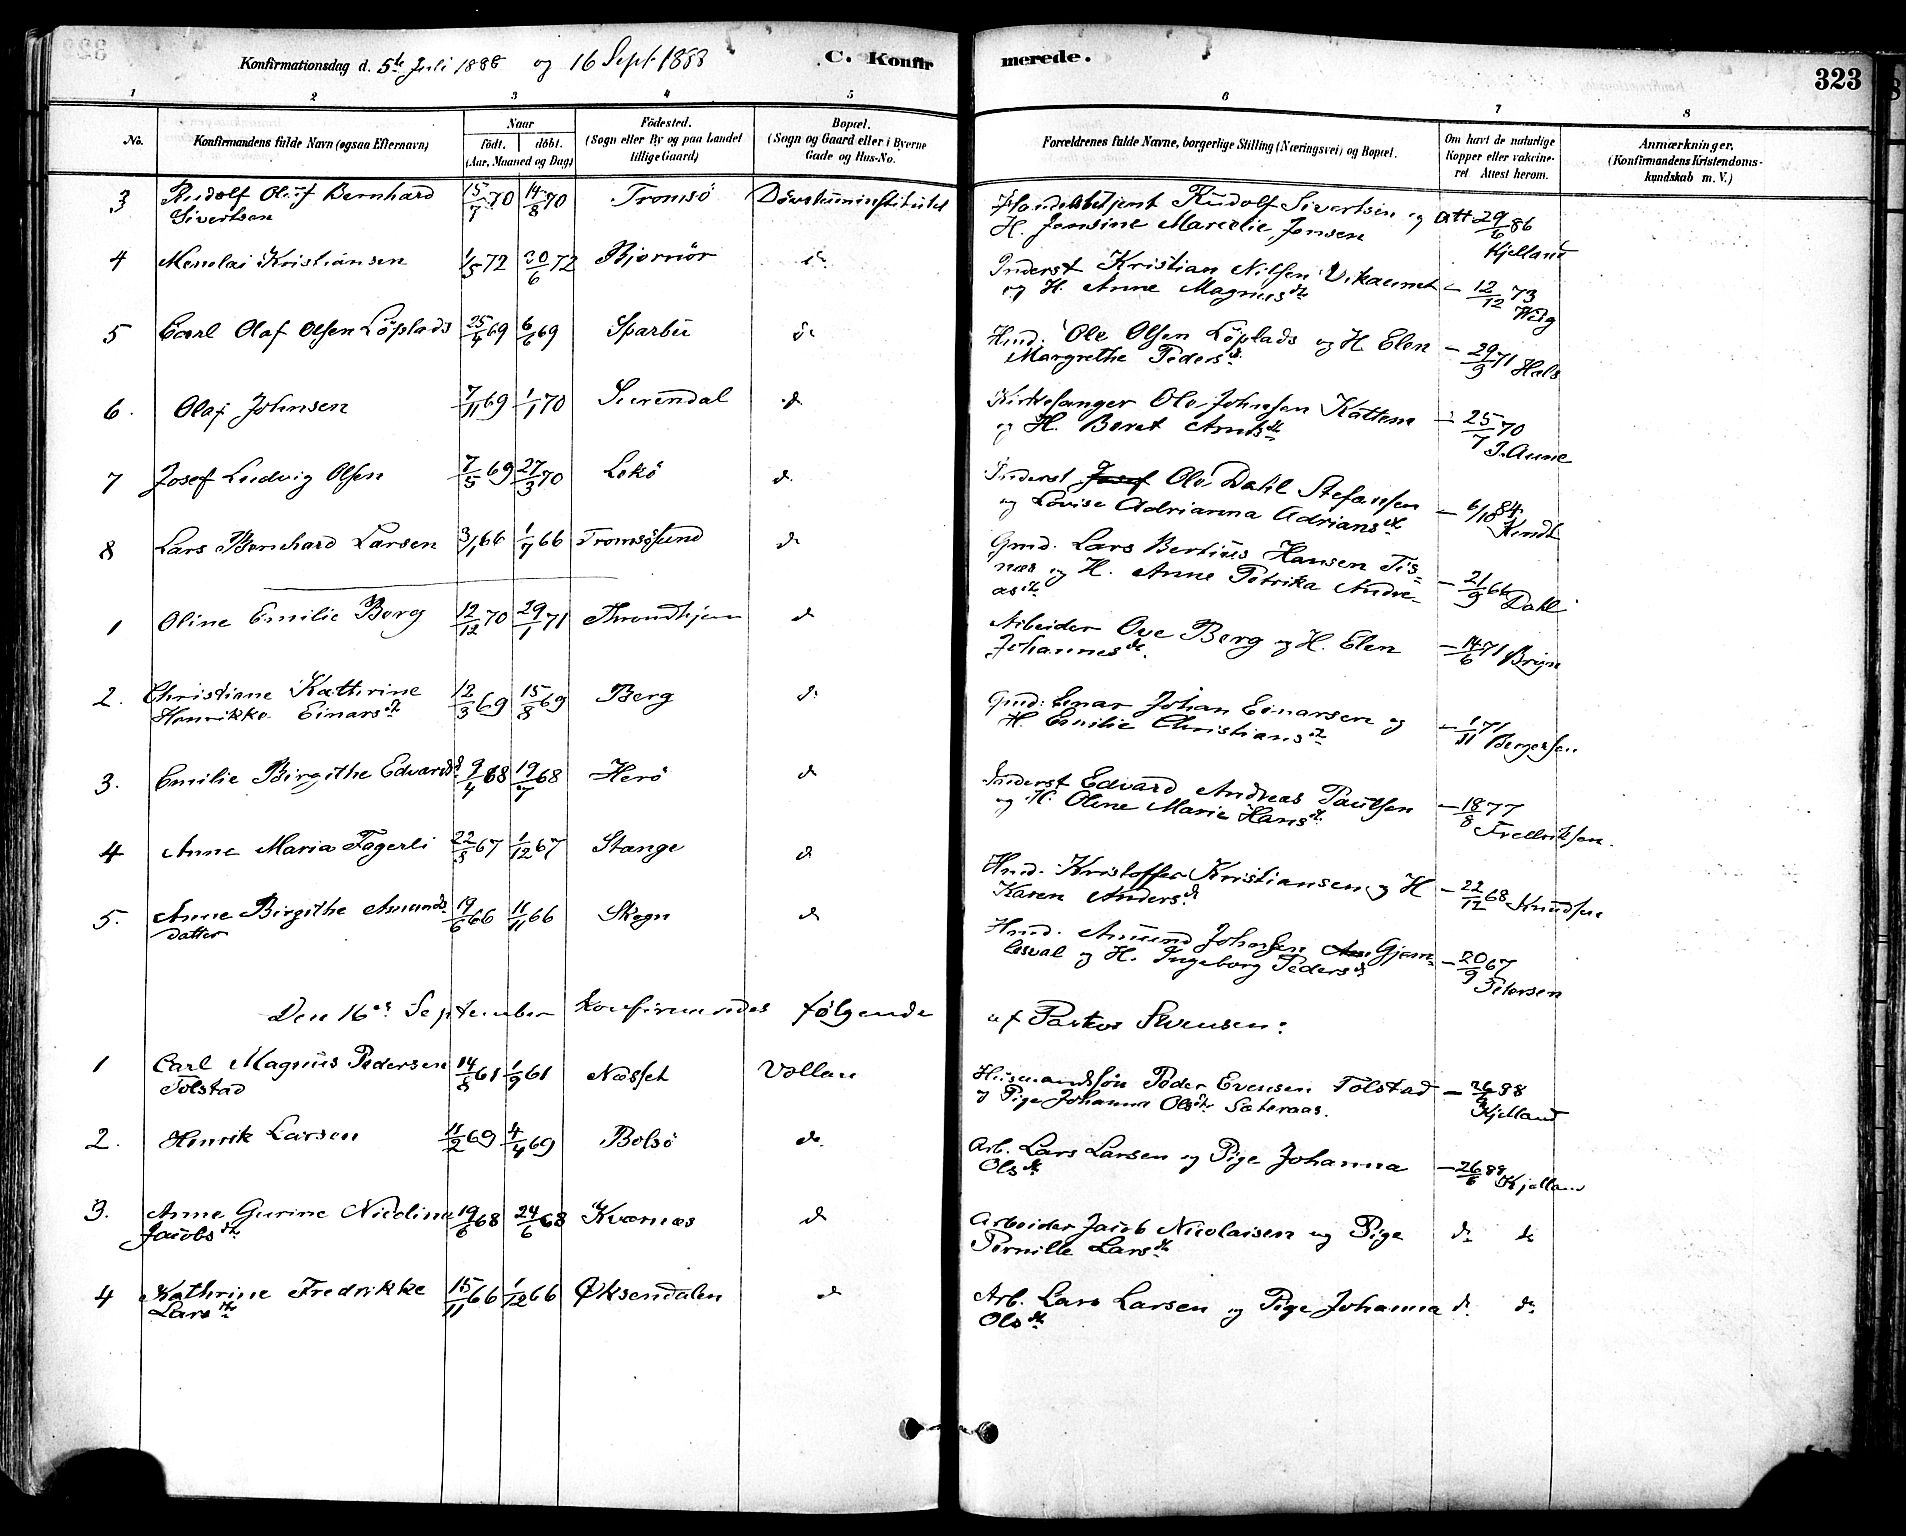 Konfirmationsdag d. 5te Juli 1888 og 16 Sept. 1888 C. Konfir merede. 323
1 2 3 4 5 6 7 8
No. Konfirmandens fulde Navn (ogsaa Efternavn) Naar født. døbt. (Aar, Maaned og Dag) Födested. (Sogn eller By og paa Landet tillige Gaard) Bopæl. (Sogn og Gaard eller i Byerne Gade og Hus-No. Forældrenes fulde Navne, borgerlige Stilling (Næringsvei) og Bopæl. Om havt de naturlige Kopper eller vakcineret Attest herom. Anmærkninger. (Konfirmandens Kristendomskundskab m. V.)
3 Rudolf Oluf Bernhard 15/7 70 14/8 70 Tromsö Døvstuminstitutet Handelsbetjent Rudolf Sivertsen og Att 29/6 86
Sivertsen H. Jonsine Marcelie Jensen Kjelland
4 Menolai Kristiansen 1/5 72 30/6 72 Bjornör d. Inderst Kristian Nilsen Vikaunet – 12/12 73
og H. Anne Magnusdt Wiig
5 Carl Olaf Olsen Löplads 25/4 69 6/6 69 Sparbu d Hmd. Ole Olsen Löplads og H. Elen – 29/9 71 Hals
Margrethe Pedersdt.
6. Olaf Johnsen 7/11 69 1/1 70 Surendal d. Kirkesanger Ole Johnsen Kattem – 25/7 70
og H. Beret Arntsdt J. Aune
7 Josef Ludvig Olsen 7/5 69 27/3 70 Lekö d. Inderst Josef Ole Dahl Stefansen
og Lovise Adrianna Adriansdt – 6/10 84 Kindt
8 Lars Bernhard Larsen 3/1 66 1/7 66 Tromsösund d Gmd. Lars Bertius Hansen Tis-
næs og H. Anne Petrika Andre- – 21/9 66 Dahl
asdt.
1 Oline Emilie Berg 12/12 70 29/1 71 Throndhjem d Arbeider Ove Berg og H. Elen – 14/6 71 Bryn
Johannesdt.
2. Christiane Kathrine 12/3 69 15/8 69 Berg d. Gmd. Einar Johan Einarsen og – 1/11 71 Bergersen
Henrikke Einarsdt H. Emilie Christiansdt
3. Emilie Birgithe Edvardsd 9/4 68 19/7 68 Herö d Inderst Edvard Andreas Paulsen – 18/8 77
og H. Oline Marie Hansdt. Fredriksen.
4 Anne Maria Fagerli 22/8 67 1/12 67 Stange d Hmd. Kristoffer Kristiansen og H – 22/12 68 Knudsen
Karen Andersdt
5. Anne Birgithe Amunds 19/6 66 11/11 66 Skogn d Hmd. Amund Johnsen Gjem-
datter lesval og H. Ingeborg Pedersdt – 20/9 67
Petersen
Den 16de September konfirmeredes følgende af Pastor Svensen:
1 Carl Magnus Pedersen 14/8 61 1/9 61 Næsset Vollan Husmandssøn Peder Evensen Tolstad – 26/6 88
Tolstad og Pige Johanna Olsdt Sæteraas. Kjelland
2. Henrik Larsen 11/2 69 4/4 69 Bolsö do. Arb. Lars Larsen og Pige Johanna – 26/6 88 Kjelland
Olsdt
3. Anne Gurine Nicoline 19/6 68 24/6 68 Kvernes d Arbeider Jacob Nicolaisen og Pige do do
Jacobsdt. Pernille Larsdt
4 Kathrine Fredrikke 15/11 66 1/12 66 Øksendalen d Arb. Lars Larsen og Pige Johanna d. do
Larsdt. Olsdt